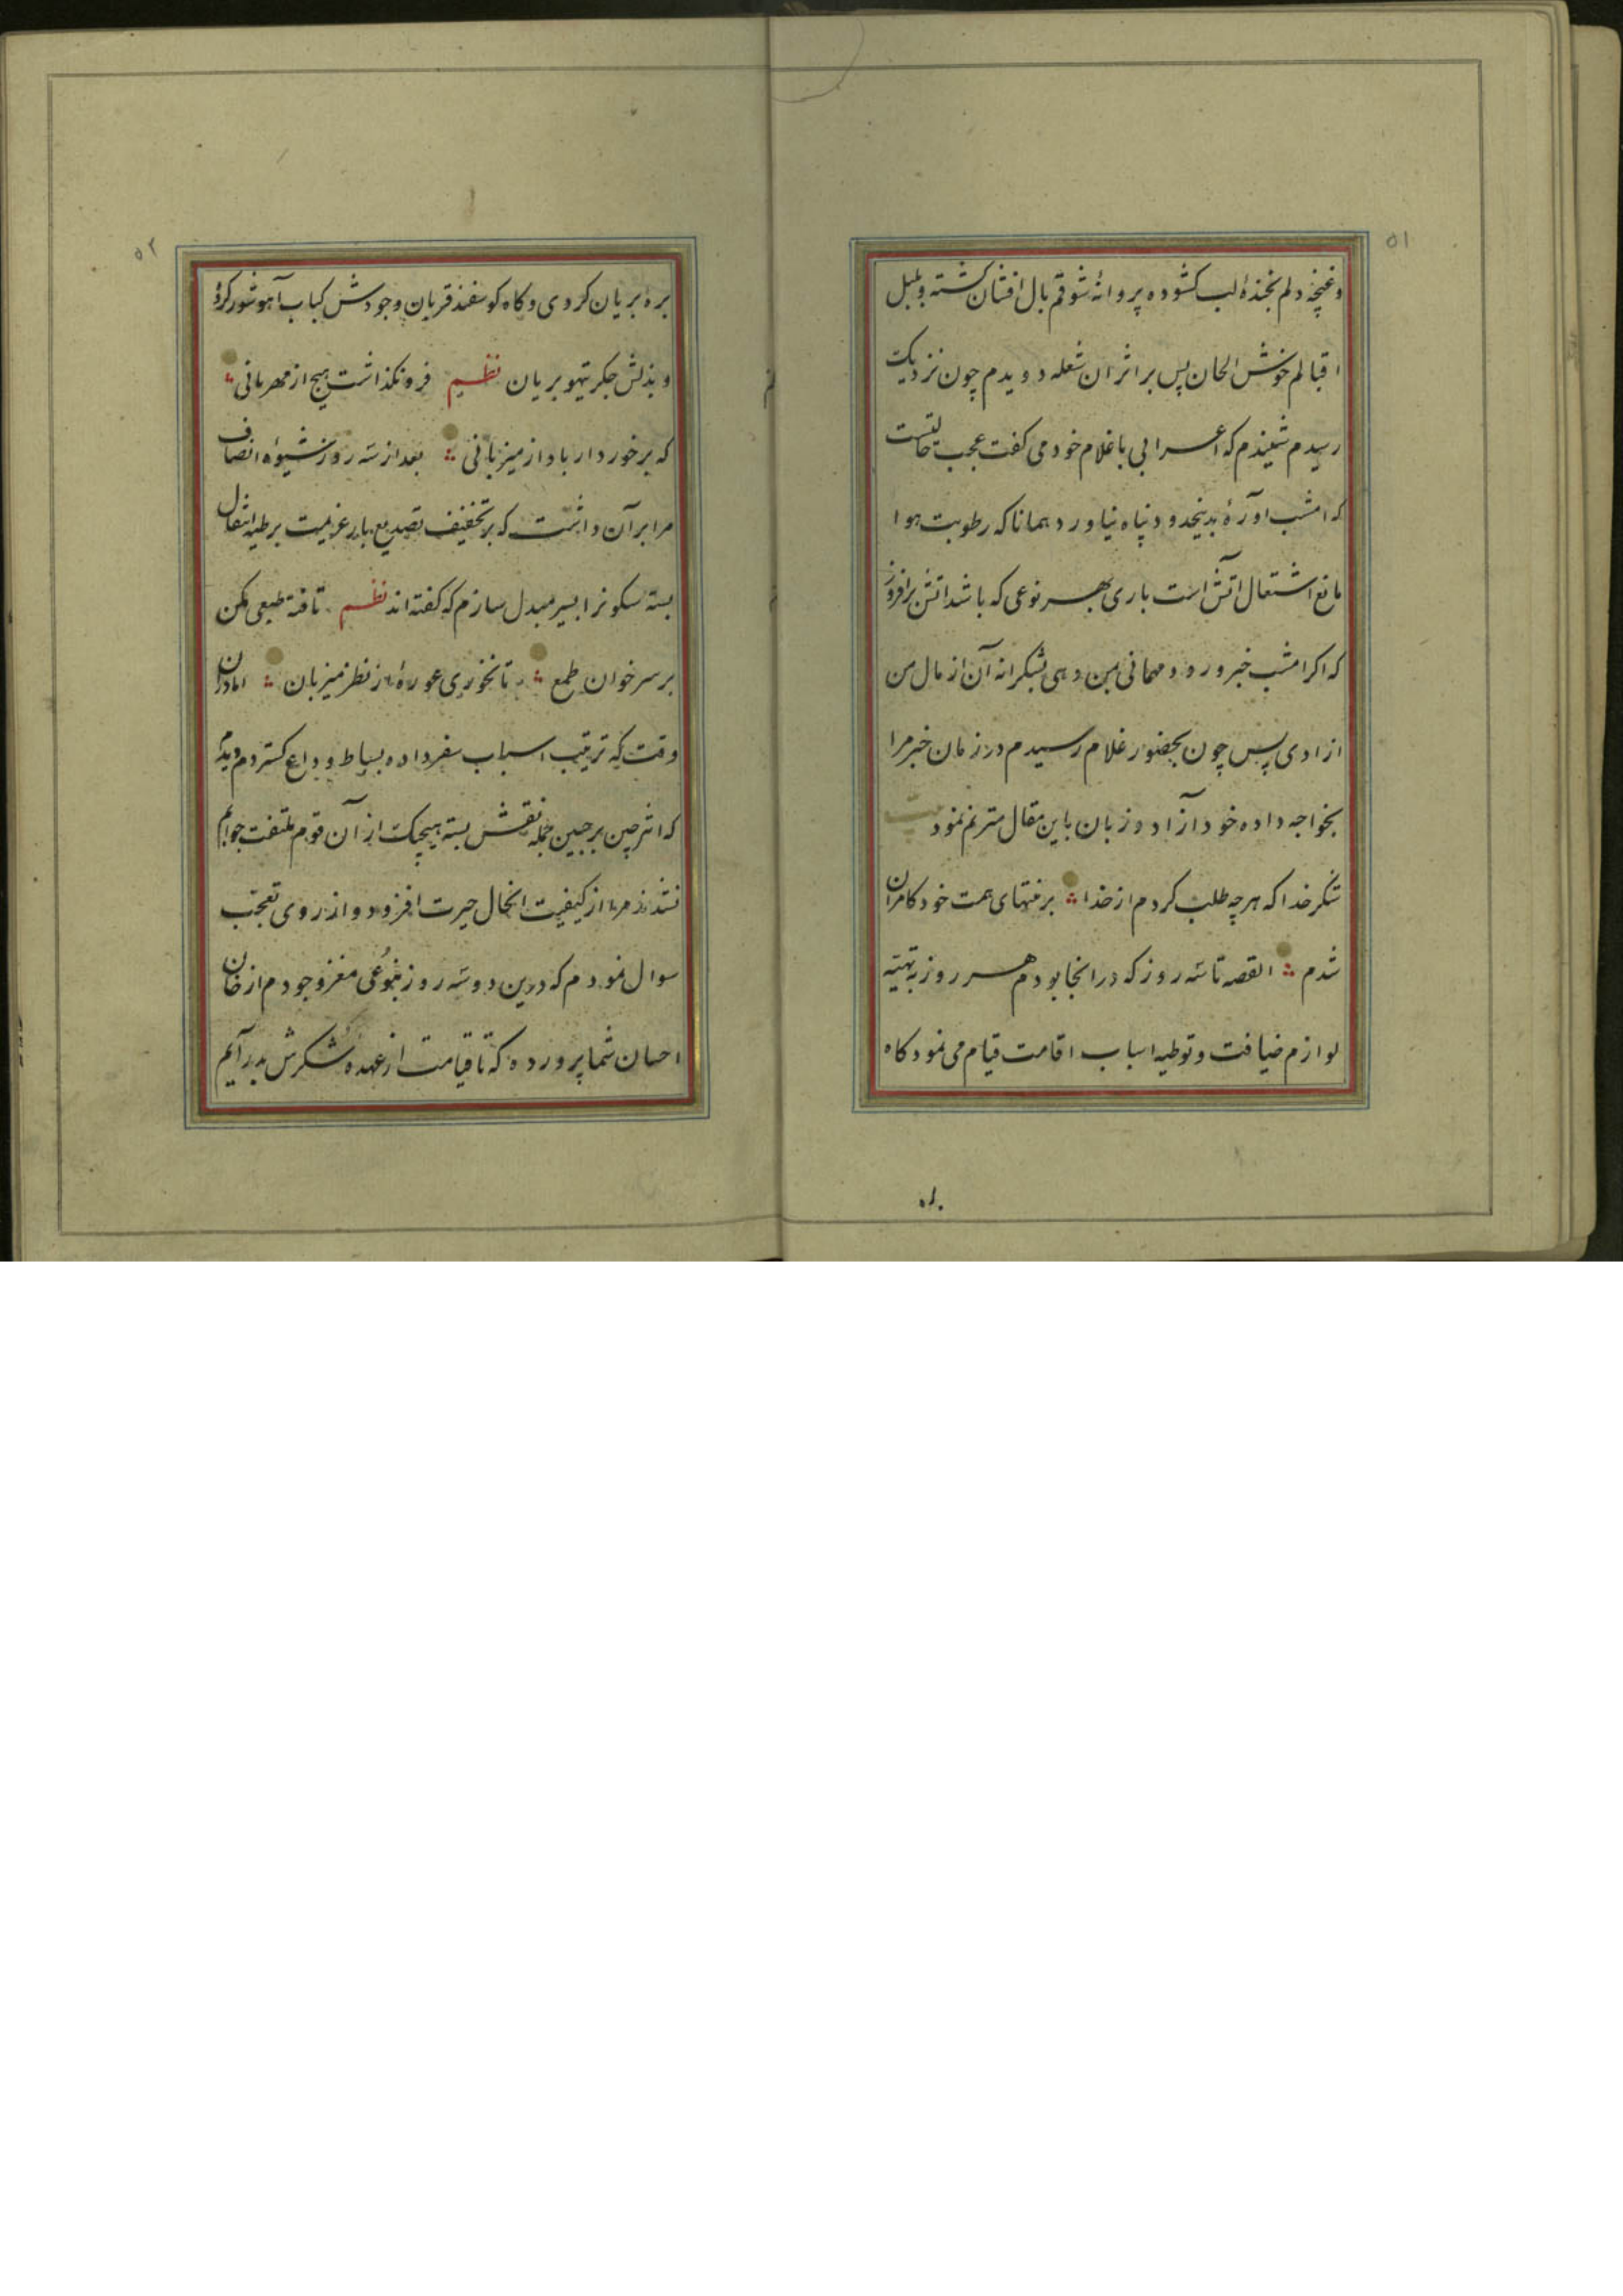 ۵۱
و غنچه دلم بخندهٔ لب کشوده پروانهٔ شوقم بال افشان کشته و بلبل
اقبالم خوش الحان پس بر اثر ان شعله دویدم چون نزدیک
رسیدم شنیدم که اعرابی با غلام خود می کفت عجب حالتیست
که امشب اورهٔ بدینحدود پناه نیاورد همانا که رطوبت هوا
مانع اشتعال اتش است باری بهر نوعی که باشد اتش برافروز
که اکر امشب خبر ورود مهمانی بمن دهی بشکرانه آن از مال من
ازادی پس چون بحضور غلام رسیدم در زمان خبر مرا
بخواجه داده خود آزاد و زبان باین مقال مترنم نمود بیت
شکر خدا که هرچه طلب کردم از خدا ؞ بر منتهای همت خود کامران
شدم ؞ القصه تا سه روز که در انجا بودم هر روز به تهیئه
لوازم ضیافت و توطیه اسباب اقامت قیام می نمود کاه
۵۲
برهٔ بریان کردی و کاه کوسفند قربان وجودش کباب آهو شور کرد
و بذلش جکر تیهو بریان نظم فرو نکذاشت هیچ از مهربانی ؞
که برخوردار باد از میزبانی ؞ بعد از سه روز شیوهٔ انصاف
مرا بر آن داشت که بر تخفیف تصدیع بار عزیمت بر مطیه انتقال
بسته سکونرا بسیر مبدل سازم که کفته اند نظم تافته طبعی مکن
بر سر خوان طمع ؞ تا نخوری عورهٔ از نظر میزبان ؞ اما دران
وقت که ترتیب اسباب سفر داده بساط وداع کستردم دیدم
که اثر چین بر جبین جمله نقش بسته هیچیک از آن قوم ملتفت جوابم
نشدند مرا از کیفیت انحال حیرت افزود و از روی تعجب
سوال نمودم که درین دو سه روز بنوعی مغز وجودم از خان
احسان شما پرورده که تا قیامت از عهده شکرش بدر آیم